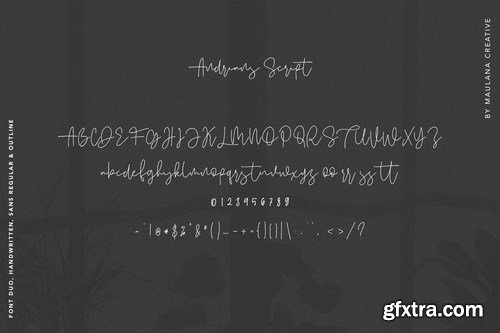 Andrians Script
ABCDEFGHIJKLMNOPQRSTUVWXYZ
abcdefghyklmnopqrstuvwxyz oo rr ss tt
0123456789
~`!@#$%^&*()_-+={}[]|\:;"',.<>/?
FONT DUO, HANDWRITTEN, SANS REGULAR & OUTLINE
BY MAULANA CREATIVE
gfxtra.com